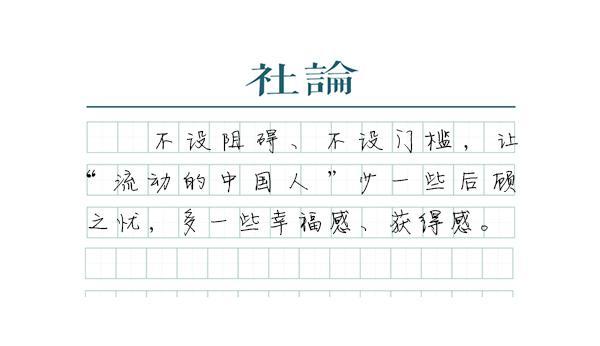 社論
不设阻碍、不设门槛，让
“流动的中国人”少一些后顾
之忧，多一些幸福感、获得感。